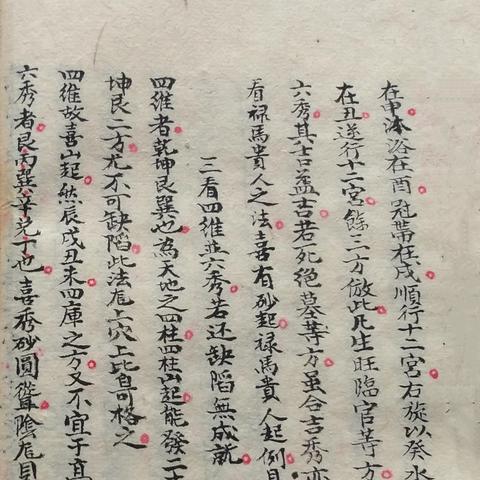 在申沐浴在酉冠帶在戌順行十二宮右旋以癸水
在丑逆行十二宮餘三方倣此凡生旺臨官等方
六秀其吉益吉若死絕墓等方虽合吉秀亦
看禄馬貴人之法喜有砂起禄馬貴人起例
三看四維並六秀若还缺陷無成就
四維者乾坤艮巽也為天地之四柱四柱山起能發二十
坤艮二方尤不可缺陷此法在上穴上比自可格之
四維故喜山起然辰戌丑未四庫之方又不宜于真
六秀者艮丙巽辛兑丁也喜秀砂圓聳陰